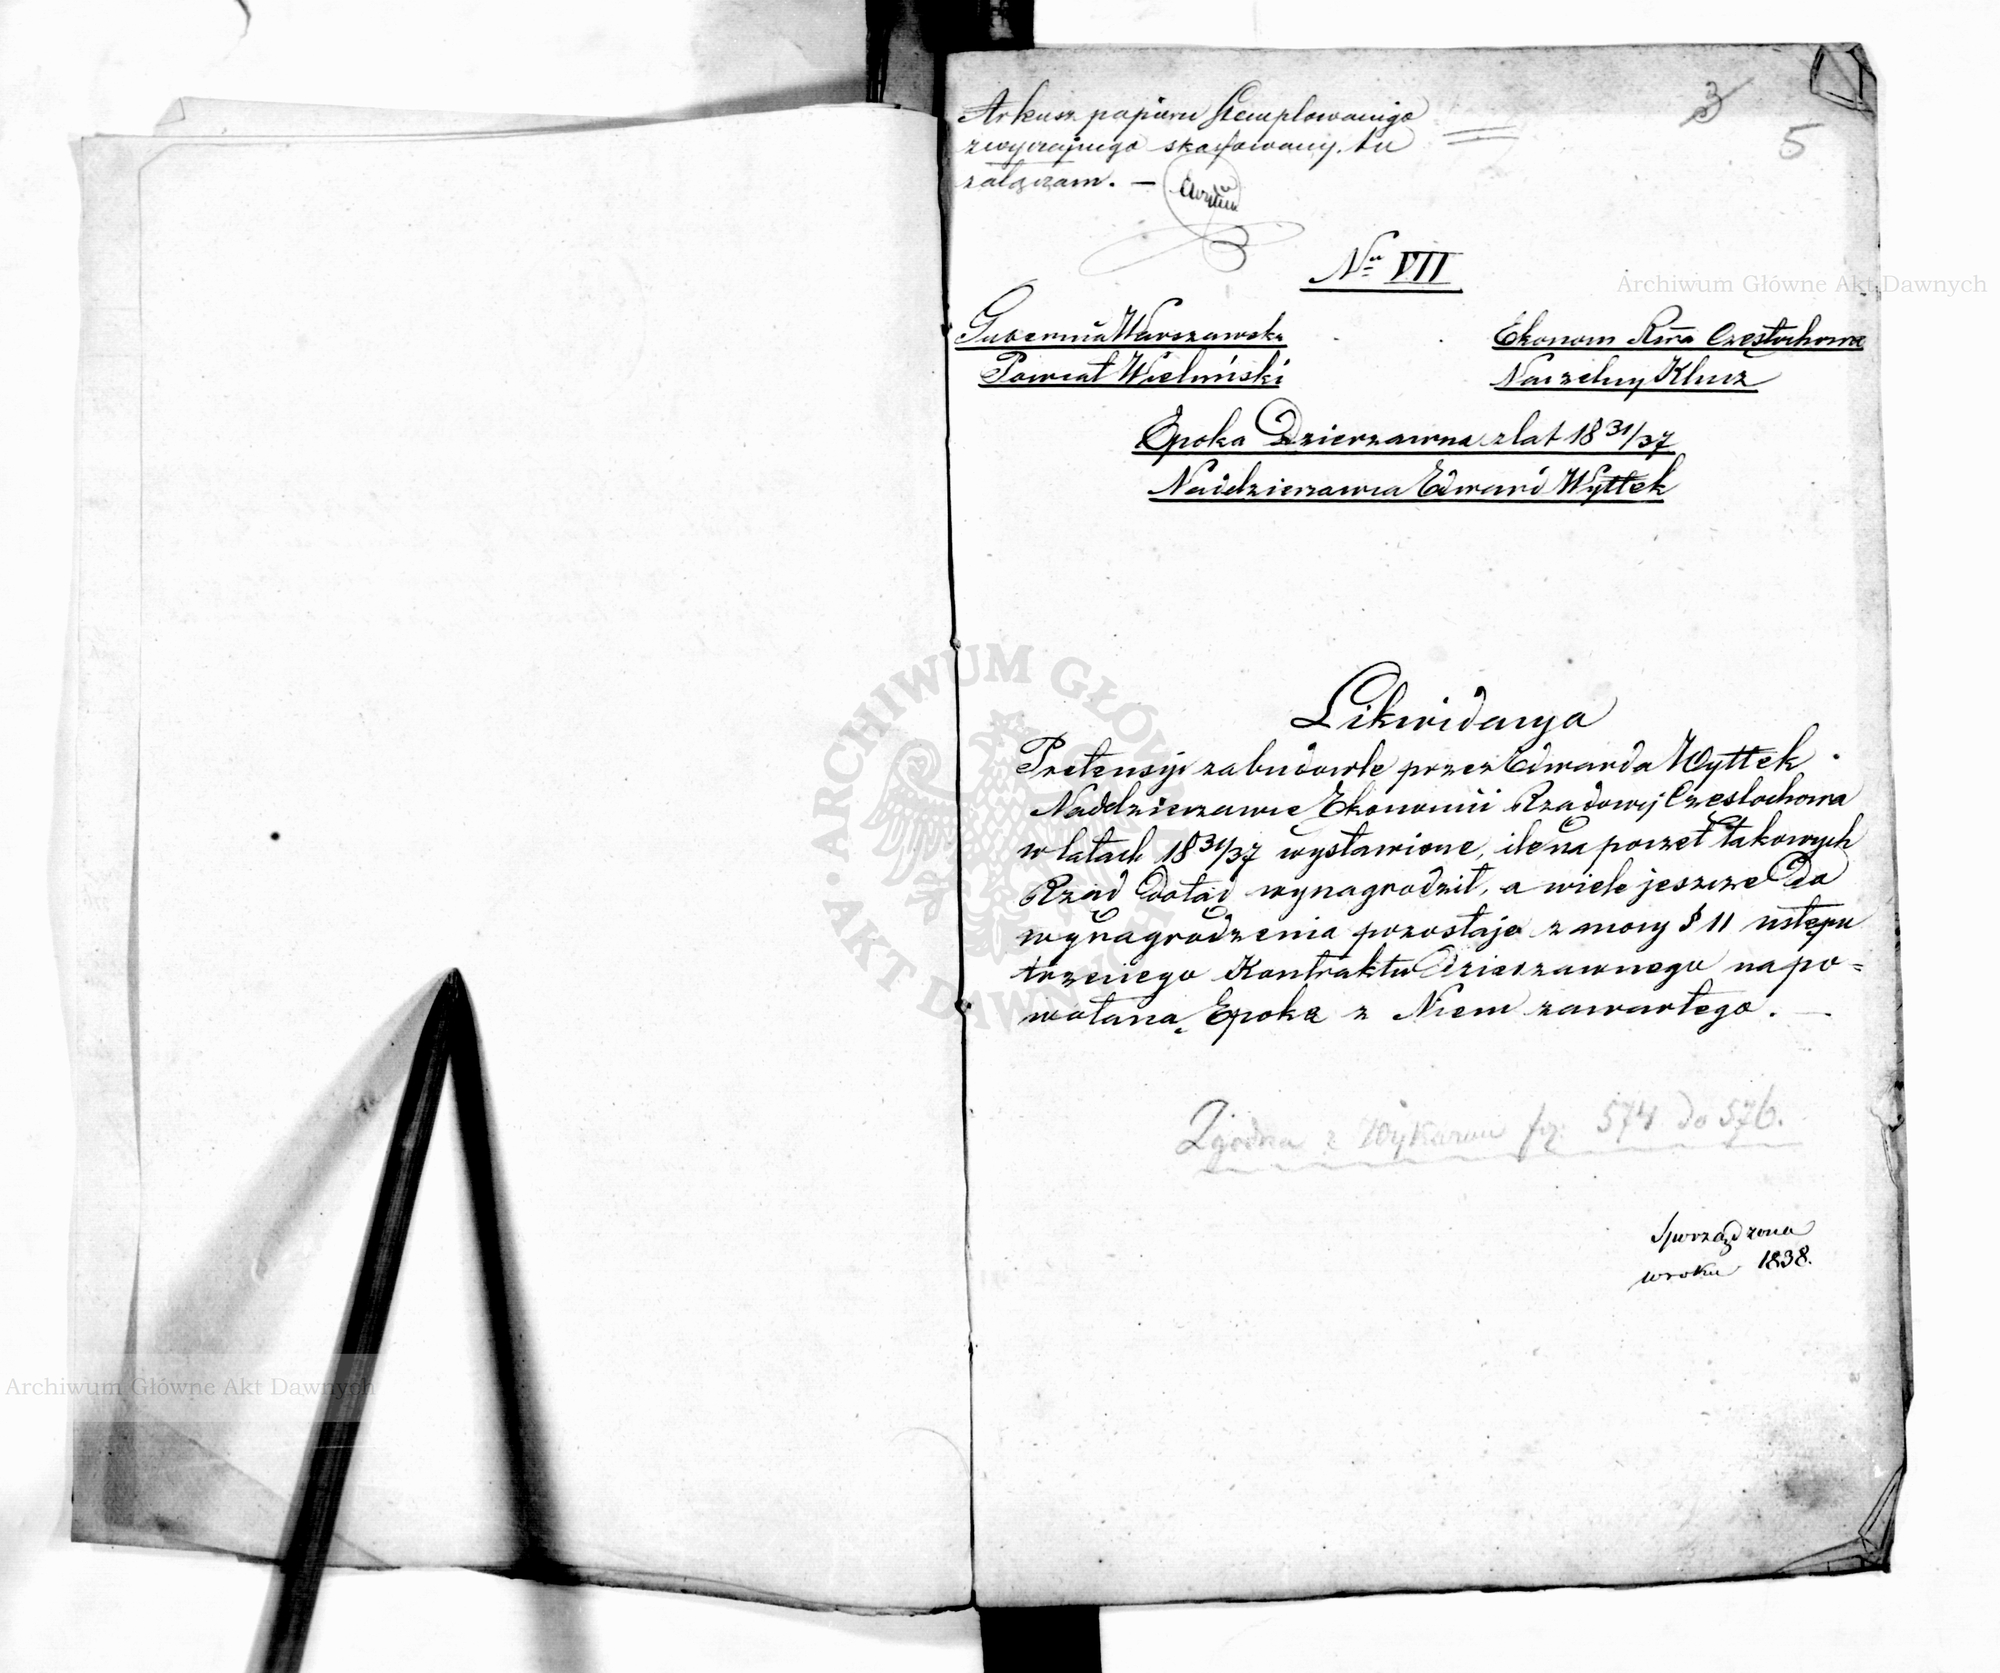 Arkusz papieru stemplowanego
zwyczajnego skasowany tu
załączam. —
3
5
Nro VII
Gubernia Warszawska
Powiat Wieluński
Ekonom Rząd Częstochowa
Naczelny Klucz
Epoka Dzierzawna z lat 18 31/37
Naddzierzawca Edward Wyttek
Likwidacya
Pretensyi za budowle przez Edwarda Wyttek
Naddzierzawcę Ekonomii Rządowej Częstochowa
w latach 18 31/37 wystawione, ile na poczet takowych
Rząd dotąd wynagrodził, a wiele jeszcze do
wynagrodzenia pozostaje z mocy § 11 ustępu
trzeciego Kontraktu Dzierzawnego na po=
wołaną Epokę z Niem zawartego. —
Zgodna z Wykazem poz: 574 do 576.
Sporządzona
w roku 1838.
ARCHIWUM GŁÓWNE AKT DAWNYCH
Archiwum Główne Akt Dawnych
Archiwum Główne Akt Dawnych